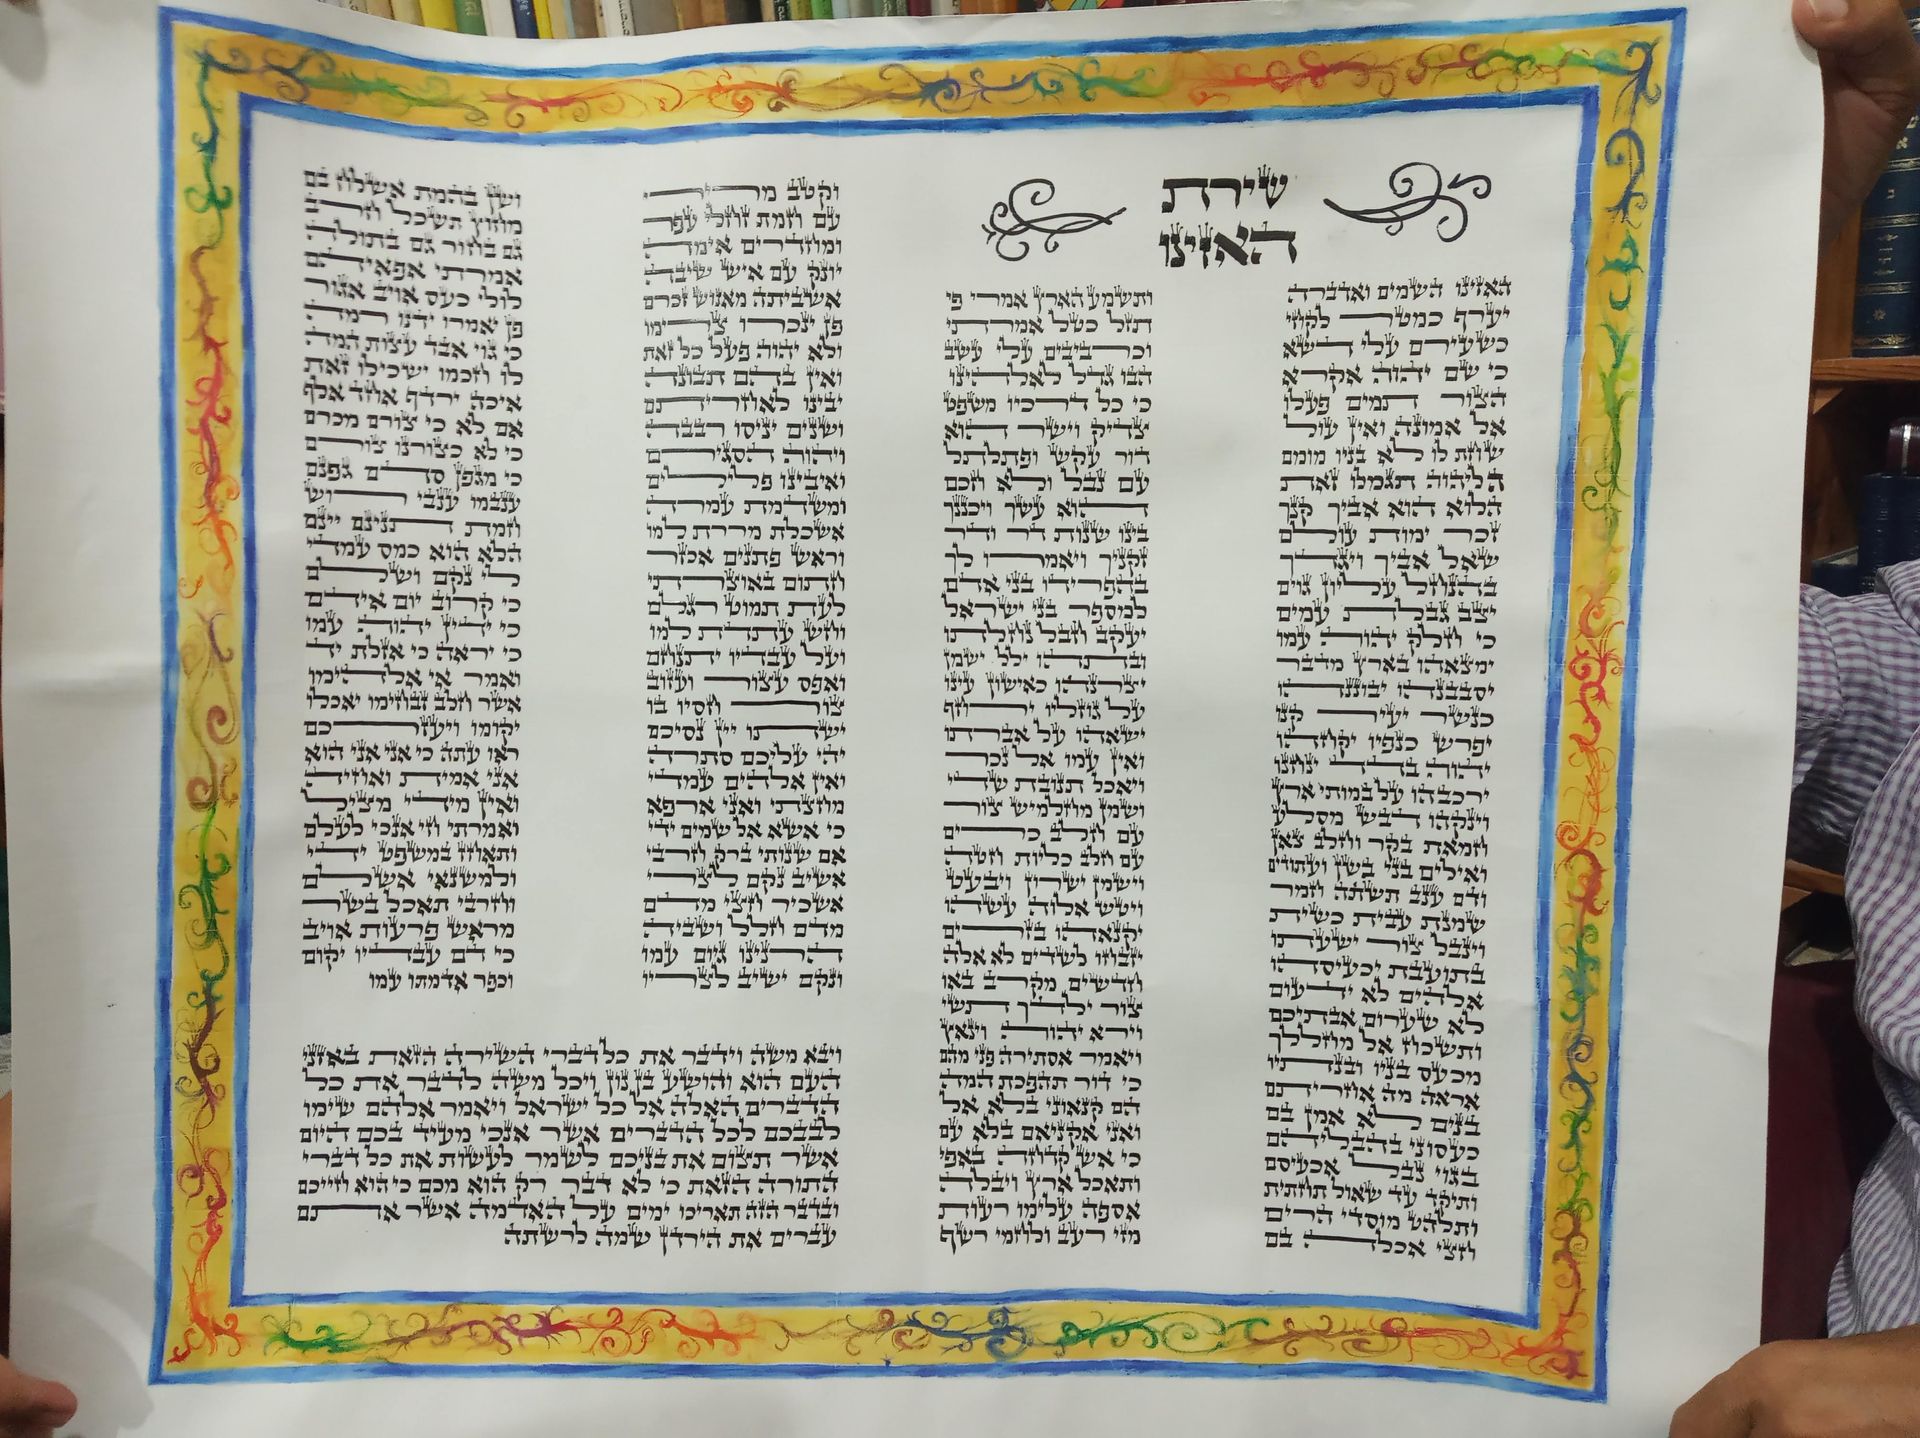 שירת
האזינו
האזינו השמים ואדברה ותשמע הארץ אמרי פי
יערף כמטר לקחי תזל כטל אמרתי
כשעירם עלי דשא וכרביבים עלי עשב
כי שם יהוה אקרא הבו גדל לאלהינו
הצור תמים פעלו כי כל דרכיו משפט
אל אמונה ואין עול צדיק וישר הוא
שחת לו לא בניו מומם דור עקש ופתלתל
הליהוה תגמלו זאת עם נבל ולא חכם
הלוא הוא אביך קנך הוא עשך ויכננך
זכר ימות עולם בינו שנות דר ודר
שאל אביך ויגדך זקניך ויאמרו לך
בהנחל עליון גוים בהפרידו בני אדם
יצב גבלת עמים למספר בני ישראל
כי חלק יהוה עמו יעקב חבל נחלתו
ימצאהו בארץ מדבר ובתהו ילל ישמן
יסבבנהו יבוננהו יצרנהו כאישון עינו
כנשר יעיר קנו על גוזליו ירחף
יפרש כנפיו יקחהו ישאהו על אברתו
יהוה בדד ינחנו ואין עמו אל נכר
ירכבהו על במותי ארץ ויאכל תנובת שדי
וינקהו דבש מסלע ושמן מחלמיש צור
חמאת בקר וחלב צאן עם חלב כרים
ואילים בני בשן ועתודים עם חלב כליות חטה
ודם ענב תשתה חמר וישמן ישרון ויבעט
שמנת עבית כשית ויטש אלוה עשהו
וינבל צור ישעתו יקנאהו בזרים
בתועבת יכעיסהו יזבחו לשדים לא אלה
אלהים לא ידעום חדשים מקרב באו
לא שערום אבתיכם צור ילדך תשי
ותשכח אל מחללך וירא יהוה וינאץ
מכעס בניו ובנתיו ויאמר אסתירה פני מהם
אראה מה אחריתם כי דור תהפכת המה
בנים לא אמן בם הם קנאוני בלא אל
כעסוני בהבליהם ואני אקניאם בלא עם
בגוי נבל אכעיסם כי אש קדחה באפי
ותיקד עד שאול תחתית ותאכל ארץ ויבלה
ותלהט מוסדי הרים אספה עלימו רעות
חצי אכלה בם מזי רעב ולחמי רשף
וקטב מרירי ושן בהמת אשלח בם
עם חמת זחלי עפר מחוץ תשכל חרב
ומחדרים אימה גם בחור גם בתולה
יונק עם איש שיבה אמרתי אפאיהם
אשביתה מאנוש זכרם לולי כעס אויב אגור
פן ינכרו צרימו פן יאמרו ידנו רמה
ולא יהוה פעל כל זאת כי גוי אבד עצות המה
ואין בהם תבונה לו חכמו ישכילו זאת
יבינו לאחריתם איכה ירדף אחד אלף
ושנים יניסו רבבה אם לא כי צורם מכרם
ויהוה הסגירם כי לא כצורנו צורם
ואיבינו פלילים כי מגפן סדם גפנם
ומשדמת עמרה ענבמו ענבי רוש
אשכלת מררת למו חמת תנינם יינם
וראש פתנים אכזר הלא הוא כמס עמדי
חתום באוצרתי לי נקם ושלם
לעת תמוט רגלם כי קרוב יום אידם
וחש עתדת למו כי ידין יהוה עמו
ועל עבדיו יתנחם כי יראה כי אזלת יד
ואפס עצור ועזוב ואמר אי אלהימו
צור חסיו בו אשר חלב זבחימו יאכלו
ישתו יין נסיכם יקומו ויעזרכם
יהי עליכם סתרה ראו עתה כי אני אני הוא
ואין אלהים עמדי אני אמית ואחיה
מחצתי ואני ארפא ואין מידי מציל
כי אשא אל שמים ידי ואמרתי חי אנכי לעלם
אם שנותי ברק חרבי ותאחז במשפט ידי
אשיב נקם לצרי ולמשנאי אשלם
אשכיר חצי מדם וחרבי תאכל בשר
מדם חלל ושביה מראש פרעות אויב
הרנינו גוים עמו כי דם עבדיו יקום
ונקם ישיב לצריו וכפר אדמתו עמו
ויבא משה וידבר את כל דברי השירה הזאת באזני
העם הוא והושע בן נון ויכל משה לדבר את כל
הדברים האלה אל כל ישראל ויאמר אלהם שימו
לבבכם לכל הדברים אשר אנכי מעיד בכם היום
אשר תצום את בניכם לשמר לעשות את כל דברי
התורה הזאת כי לא דבר רק הוא מכם כי הוא חייכם
ובדבר הזה תאריכו ימים על האדמה אשר אתם
עברים את הירדן שמה לרשתה